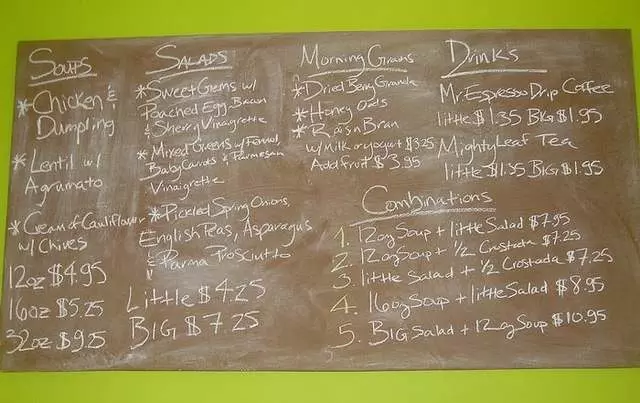 Soups
*Chicken &
Dumpling
*Lentil w/
Agrumato
*Cream of Cauliflower
w/ Chives
12oz $4.95
16oz $5.25
32oz $9.25
Salads
*Sweet Gems w/
Poached Egg, Bacon
& Sherry Vinaigrette
*Mixed Greens w/ Fennel,
Baby Carrots & Parmesan
Vinaigrette
*Pickled Spring Onions,
English Peas, Asparagus
& Parma Prosciutto
Little $4.25
BIG $7.25
Morning Grains
*Dried Berry Granola
*Honey Oats
*Raisin Bran
w/ Milk or yogurt $3.25
Add fruit $3.95
Drinks
Mr. Espresso Drip Coffee
little $1.35 BIG $1.95
Mighty Leaf Tea
little $1.35 BIG $1.95
Combinations
1. 12oz Soup + little Salad $7.95
2. 12oz Soup + 1/2 Crostada $7.25
3. little Salad + 1/2 Crostada $7.25
4. 16oz Soup + little Salad $8.95
5. BIG Salad + 12oz Soup $10.95